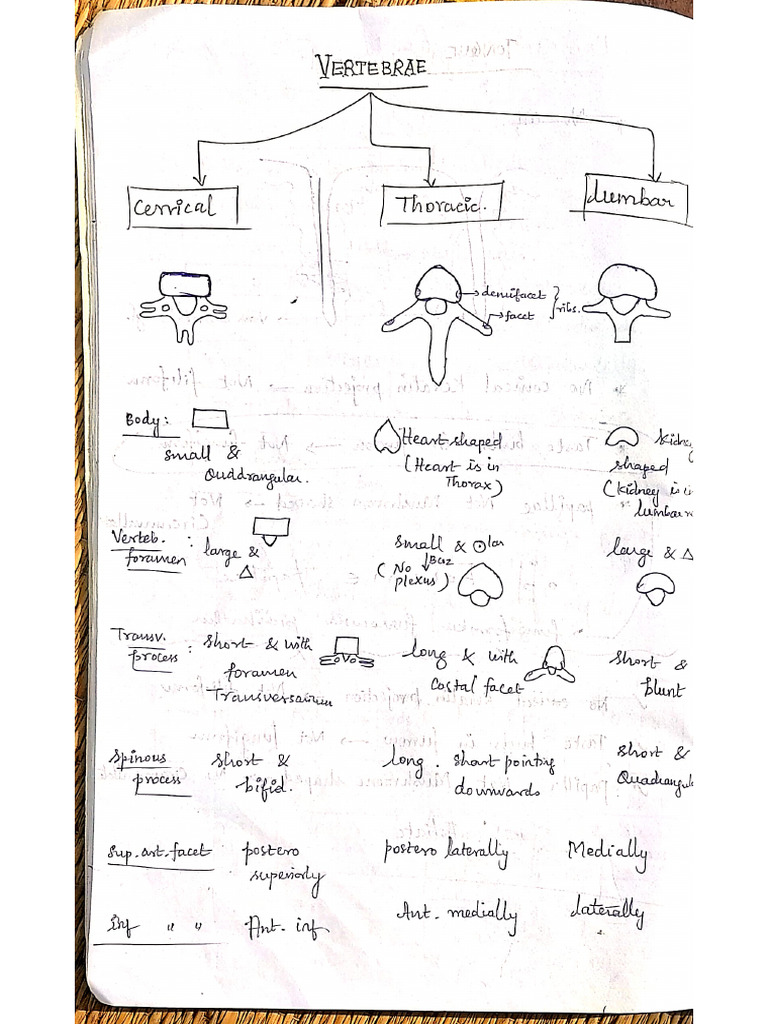 VERTEBRAE
Cervical
Thoracic.
Lumbar
demifacet
facet
ribs.
Body:
small &
Quddrangular.
Heart shaped
(Heart is in
Thorax)
kidney
shaped
(kidney is in
lumbar
Verteb.
foramen
:
large &
△
small & ⊙lar
↓Bcz
(No
plexus)
large & △
Transv.
process
:
short & with
foramen
Transversarium
long & with
Costal facet
short &
Blunt
Spinous
process
short &
bifid.
long. sharp pointing
downwards
short &
Quadrangul
Sup. art. facet
postero
superiorly
postero laterally
Medially
Inf " "
Ant. inf
Ant. medially
laterally